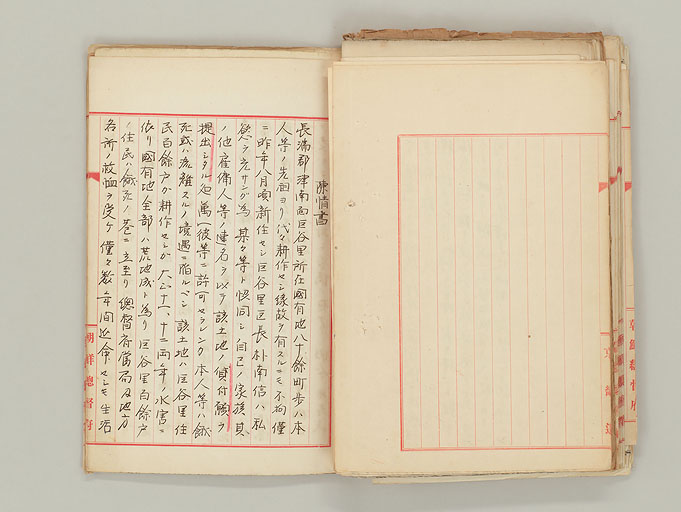 陳情書
長湍郡津南面巨谷里所在國有地八十餘町歩ハ本
人等ノ先祖ヨリ代々耕作セシ縁故ヲ有スルニモ不拘僅
ニ昨年八月頃新任セシ巨谷里区長朴南信ハ私
慾ヲ充サンガ為メ某々等ト協同シ自己ノ家族其
ノ他雇傭人等ノ連名ヲ以テ該土地ノ貸付願ヲ
提出シタル処萬一彼等ニ許可セラレンカ本人等ハ餓
死或ハ流離スルノ境遇ニ陥ルベシ該土地ハ巨谷里住
民百餘戸ガ耕作セシガ大正十一、十二両年ノ水害ニ
依リ國有地全部ハ荒地成ト為リ巨谷里百餘戸
ノ住民ハ餓死ノ巷ニ立至リ總督府當局及地方
各所ノ救恤ヲ受ケ僅々数年間延命セシモ生活
朝鮮總督府
朝鮮總督府